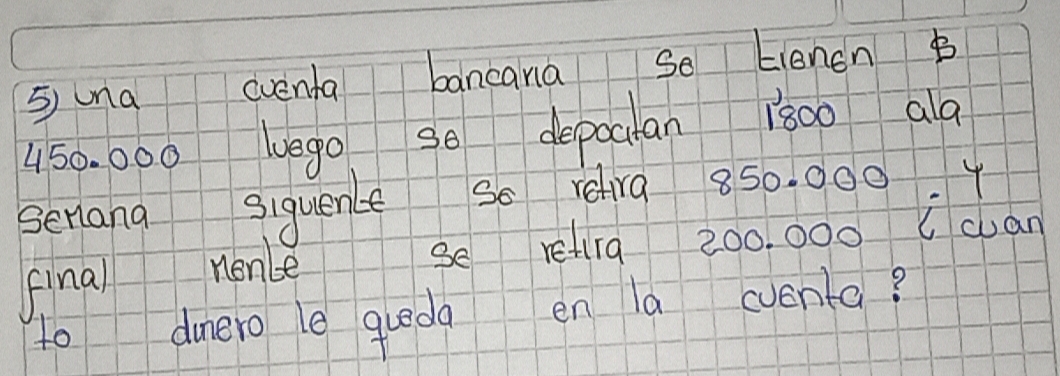 5) una cuenta bancaria se tienen $
450.000 luego se depocitan 1'800 ala
semana siguiente se retira 850.000 y
final mente se retira 200.000 ¿cuan
to dinero le queda en la cuenta?